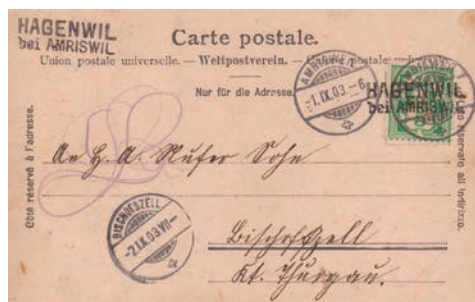 HAGENWIL
bei AMRISWIL
Carte postale.
Union postale universelle. — Weltpostverein. — Unione postale
Nur für die Adresse.
AMRISWEIL
-1.IX.03.-6
HAGENWIL
bei AMRISWIL
Côté réservé à l'adresse.
Lato riservato all'indirizzo.
An H. A. Nufer Sohn
BISCHOFSZELL
-2.IX.03.VII-
Bischofszell
Kt. Thurgau.